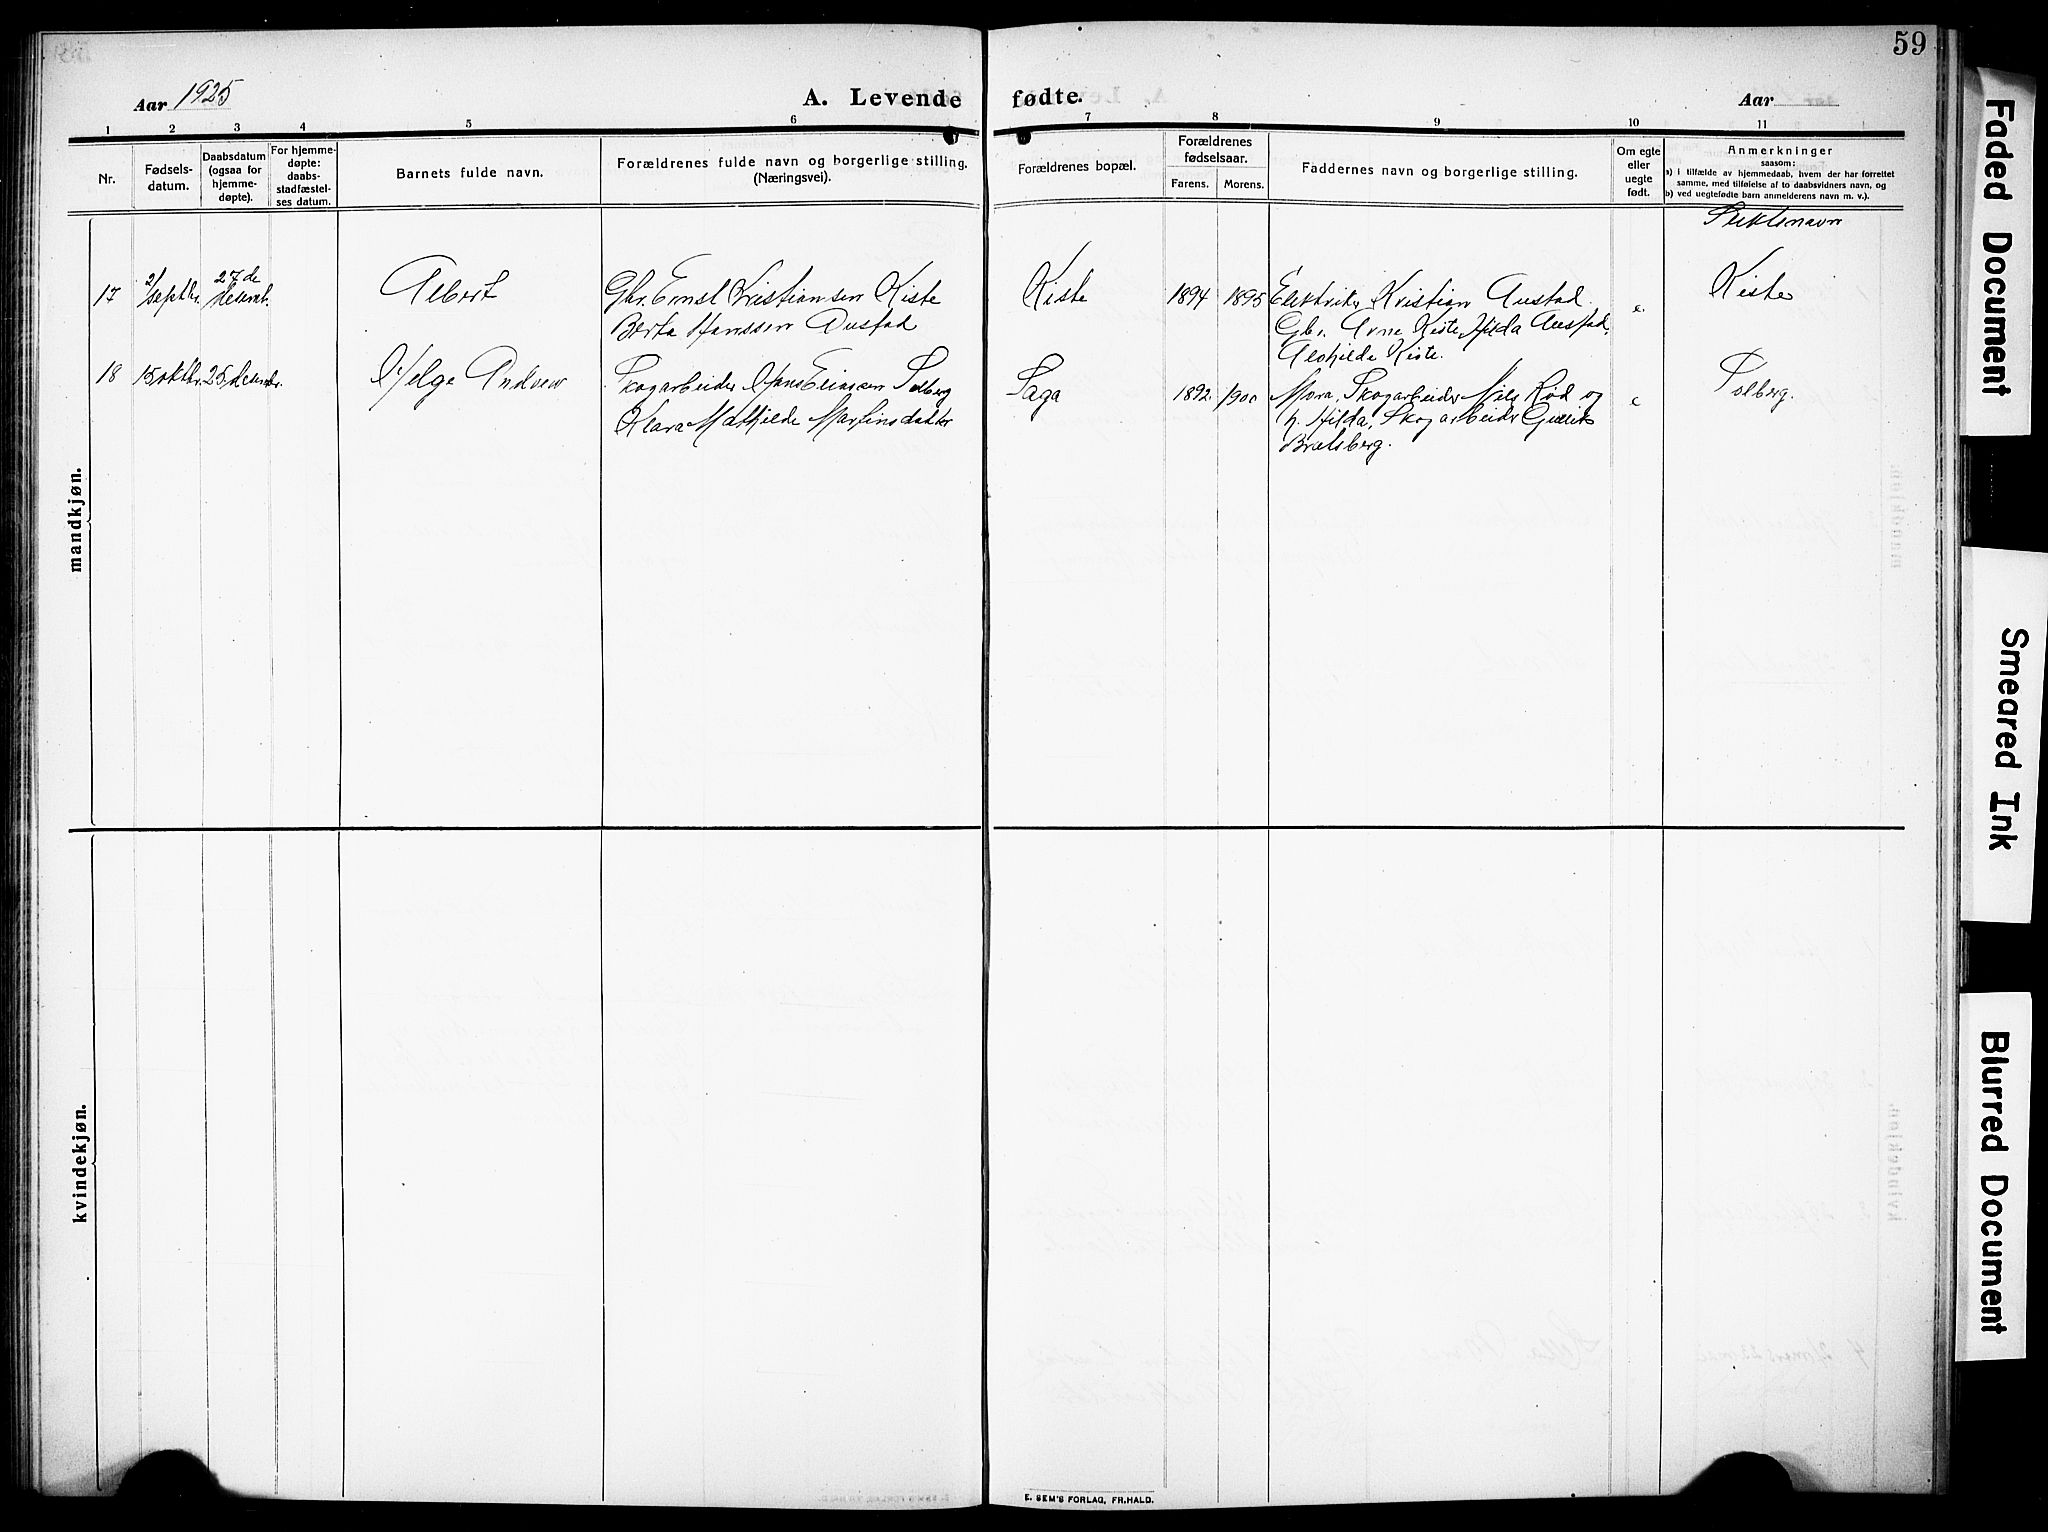 59
Aar 1925
A. Levende fødte.
Aar
1 2 3 4 5 6 7 8 9 10 11
Nr.
Fødsels-
datum.
Daabsdatum
(ogsaa for
hjemme-
døpte).
For hjemme-
døpte:
daabs-
stadfæstel-
ses datum.
Barnets fulde navn.
Forældrenes fulde navn og borgerlige stilling.
(Næringsvei).
Forældrenes bopæl.
Forældrenes
fødselsaar.
Farens. Morens.
Faddernes navn og borgerlige stilling.
Om egte
eller
uegte
født.
Anmerkninger
saasom:
a) i tilfælde av hjemmedaab, hvem der har forrettet
samme, med tilføielse af to daabsvidners navn, og
b) ved uegtefødte barn anmelderens navn m. v.).
Slektsnavn
mandkjøn.
17
2/
septbr.
27de
desemb.
Albert
Gbr. Ernst Kristiansen Kiste
Berta Hanssen Austad
Kiste
1894 1895
Elektriker Kristian Austad
Gbr. Arne Kiste, Hilda Austad,
Alshilde Kiste.
e.
Kiste
18
15 oktbr.
25 desembr.
Helge Andreas
Skogarbeider Hans Eriassen Solberg
Klara Mathilde Martinsdatter
Saga
1892. 1900
Mora, Skogarbeider Nils Rød og
h. Hilda, Skogarbeider Gullik
Bratsberg.
e
Solberg.
kvindekjøn.
E. SEM'S FORLAG, FR.HALD.
Faded Document
Smeared Ink
Blurred Document